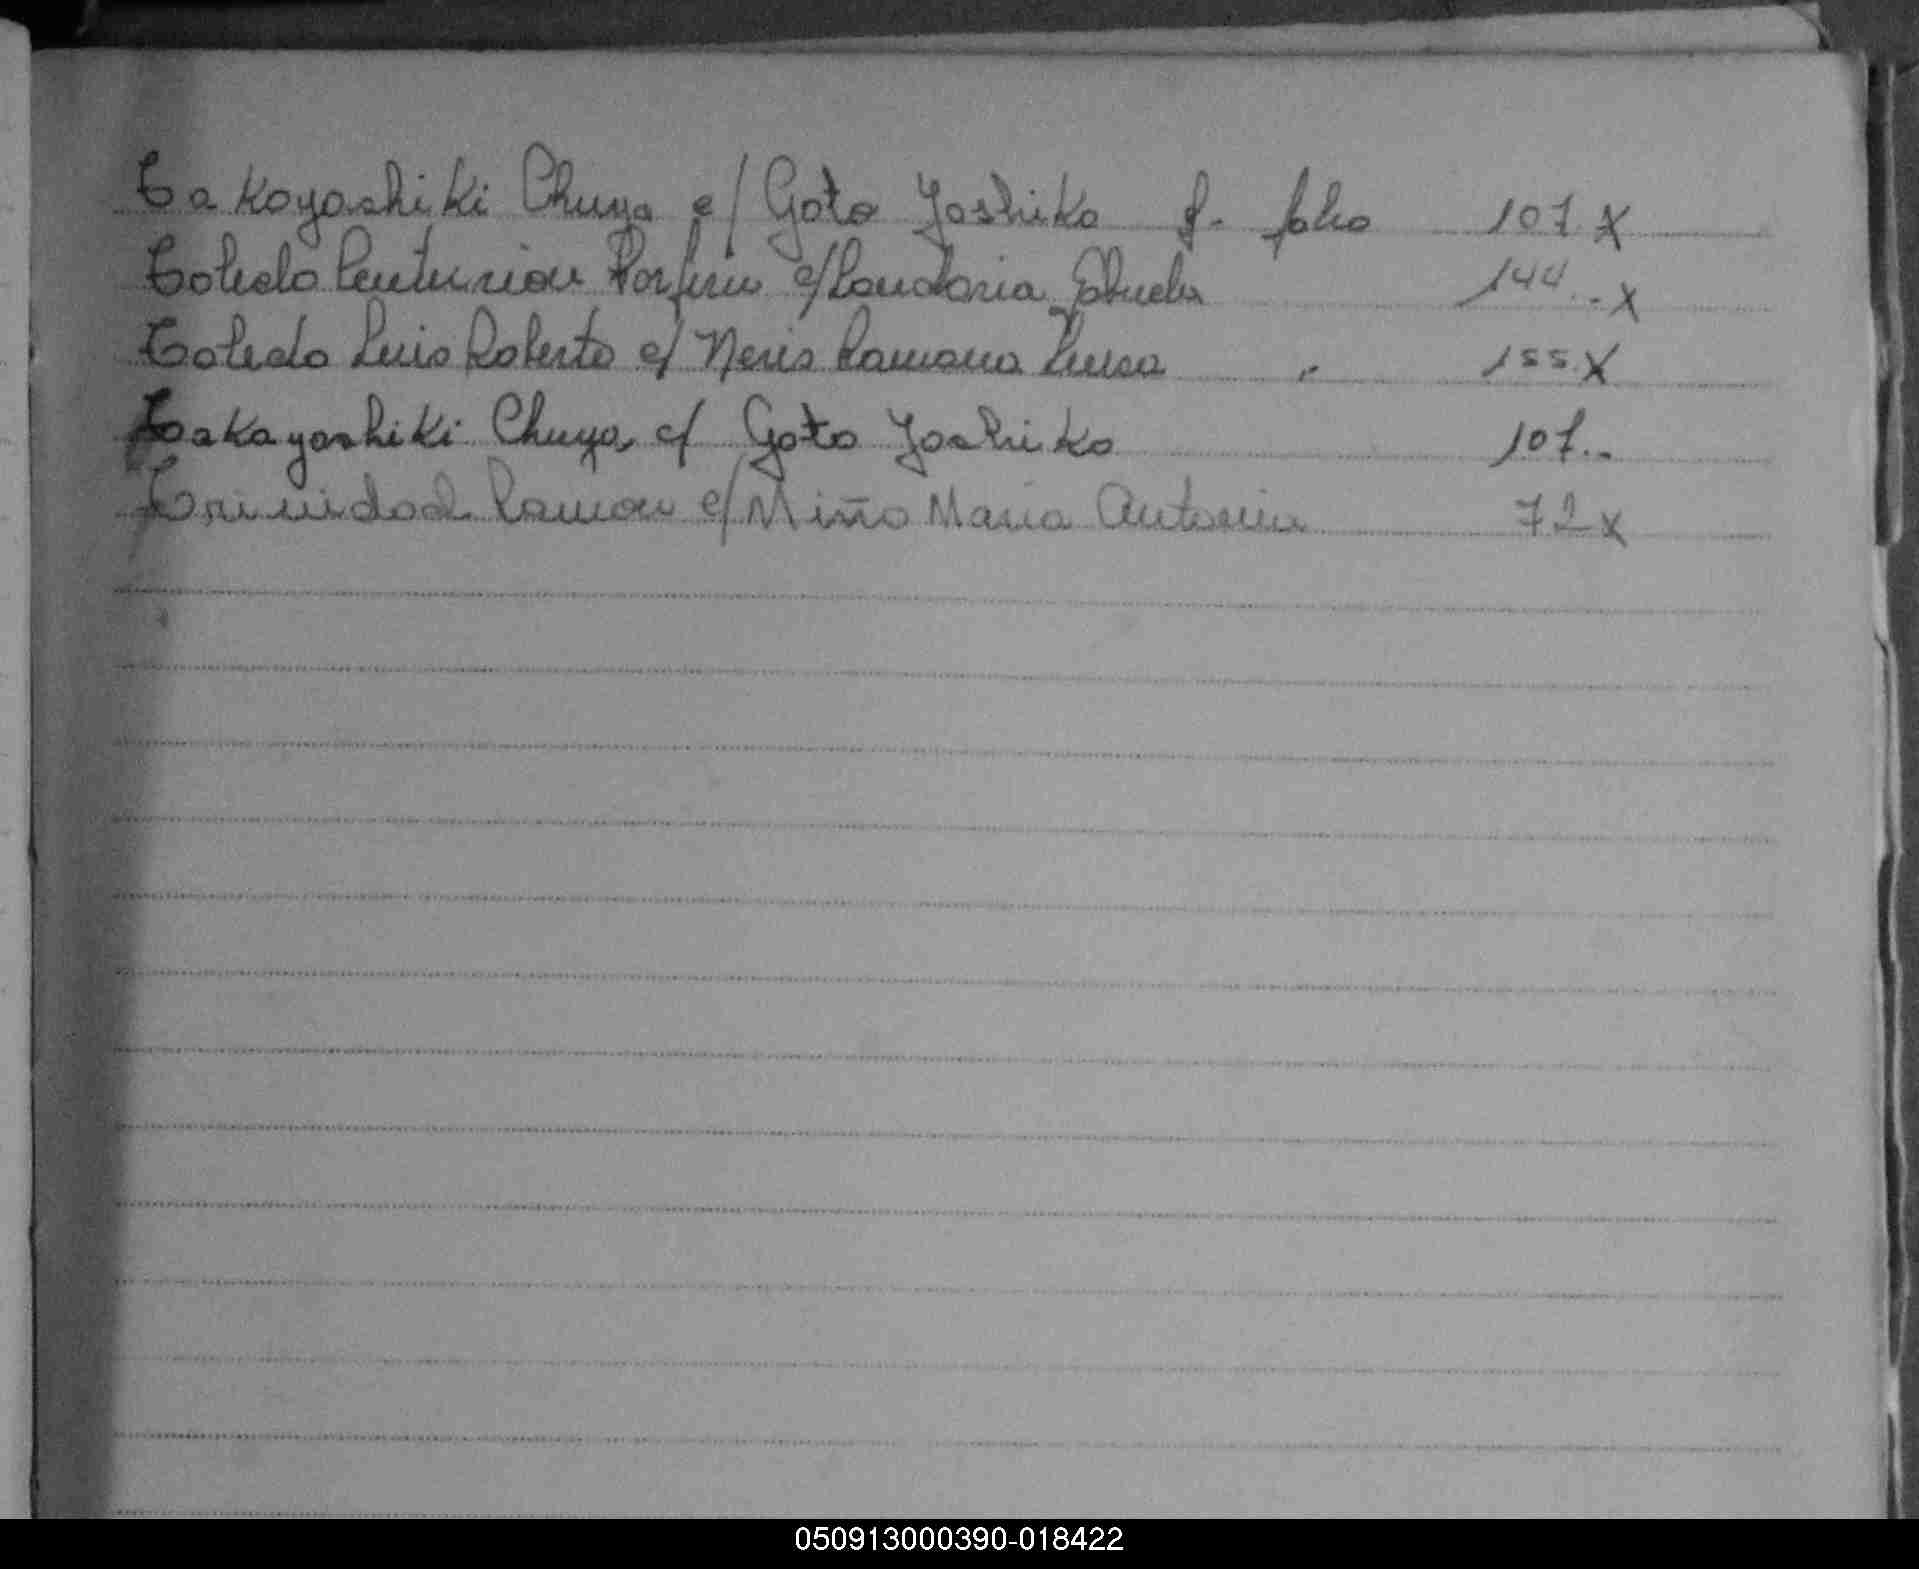 Takayashiki Chuya c/ Goto Yoshiko f. folio 107 x
Toledo Centurion Porfirio c/ Candaria 144.. x
Toledo Luis Roberto c/ Neris Ramona Luisa " 155. x
Takayashiki Chuya c/ Goto Yoshiko 107..
Trinidad Ramon c/ Miño Maria Antonia 72 x
050913000390-018422